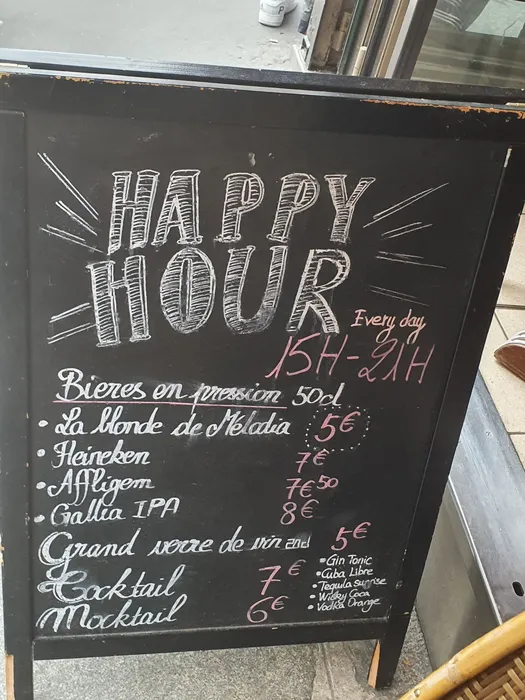 HAPPY
HOUR
Every day
15H-21H
Bieres en pression 50cl
• La blonde de Méladia 5€
• Heineken 7€
• Affligem 7€50
• Gallia IPA 8€
Grand verre de vin 20cl 5€
Cocktail 7€
Mocktail 6€
• Gin Tonic
• Cuba Libre
• Tequila sunrise
• Wisky Coca
• Vodka Orange